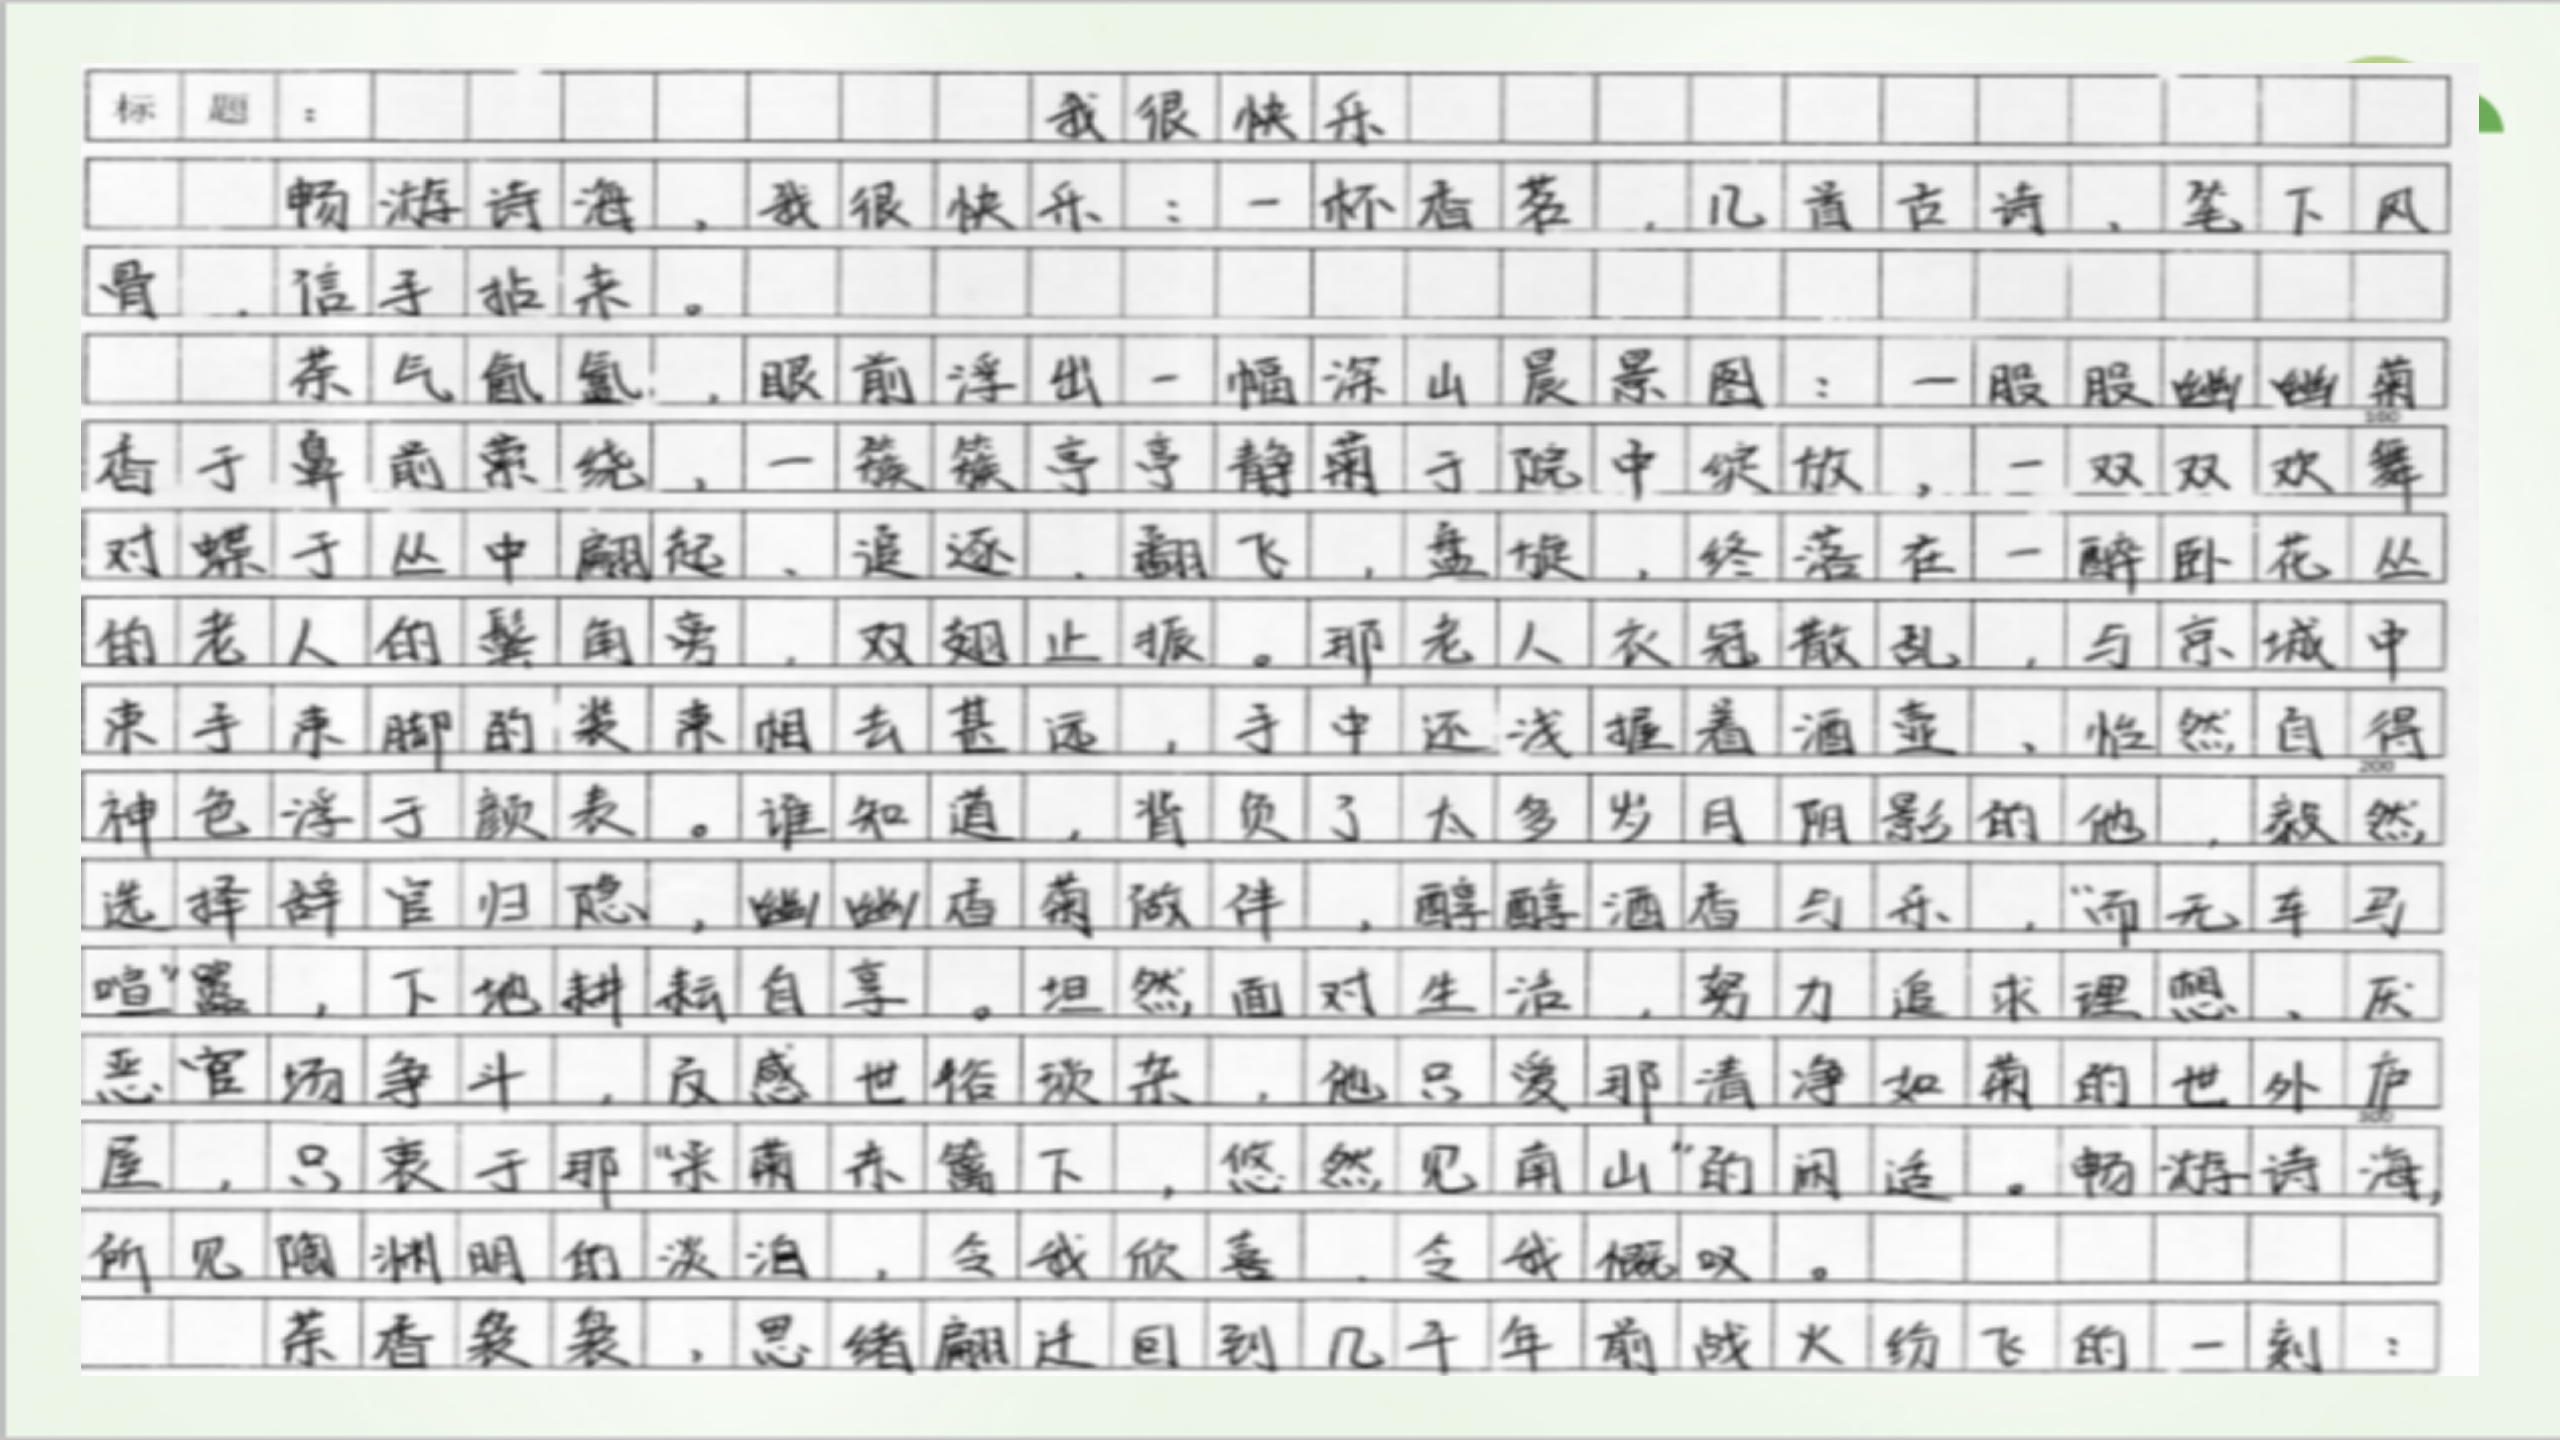 标题： 我很快乐
畅游诗海，我很快乐：一杯香茗，几首古诗，笔下风
骨，信手拈来。
茶气氤氲，眼前浮出一幅深山晨景图：一股股幽幽菊
100
香于鼻前萦绕，一簇簇亭亭静菊于院中绽放，一双双欢舞
对蝶于丛中翩起、追逐、翻飞，盘旋，终落在一醉卧花丛
的老人的鬓角旁，双翅止振。那老人衣冠散乱，与京城中
束手束脚的装束相去甚远，手中还浅握着酒壶、怡然自得
200
神色浮于颜表。谁知道，背负了太多岁月阴影的他，毅然
选择辞官归隐，幽幽香菊做伴，醇醇酒香与乐，“而无车马
喧”嚣，下地耕耘自享。坦然面对生活，努力追求理想、厌
恶官场争斗，反感世俗琐杂，他只爱那清净如菊的世外庐
300
屋，只衷于那“采菊东篱下，悠然见南山”的闲适。畅游诗海，
所见陶渊明的淡泊，令我欣喜，令我慨叹。
茶香袅袅，思绪翩迁回到几千年前战火纷飞的一刻：